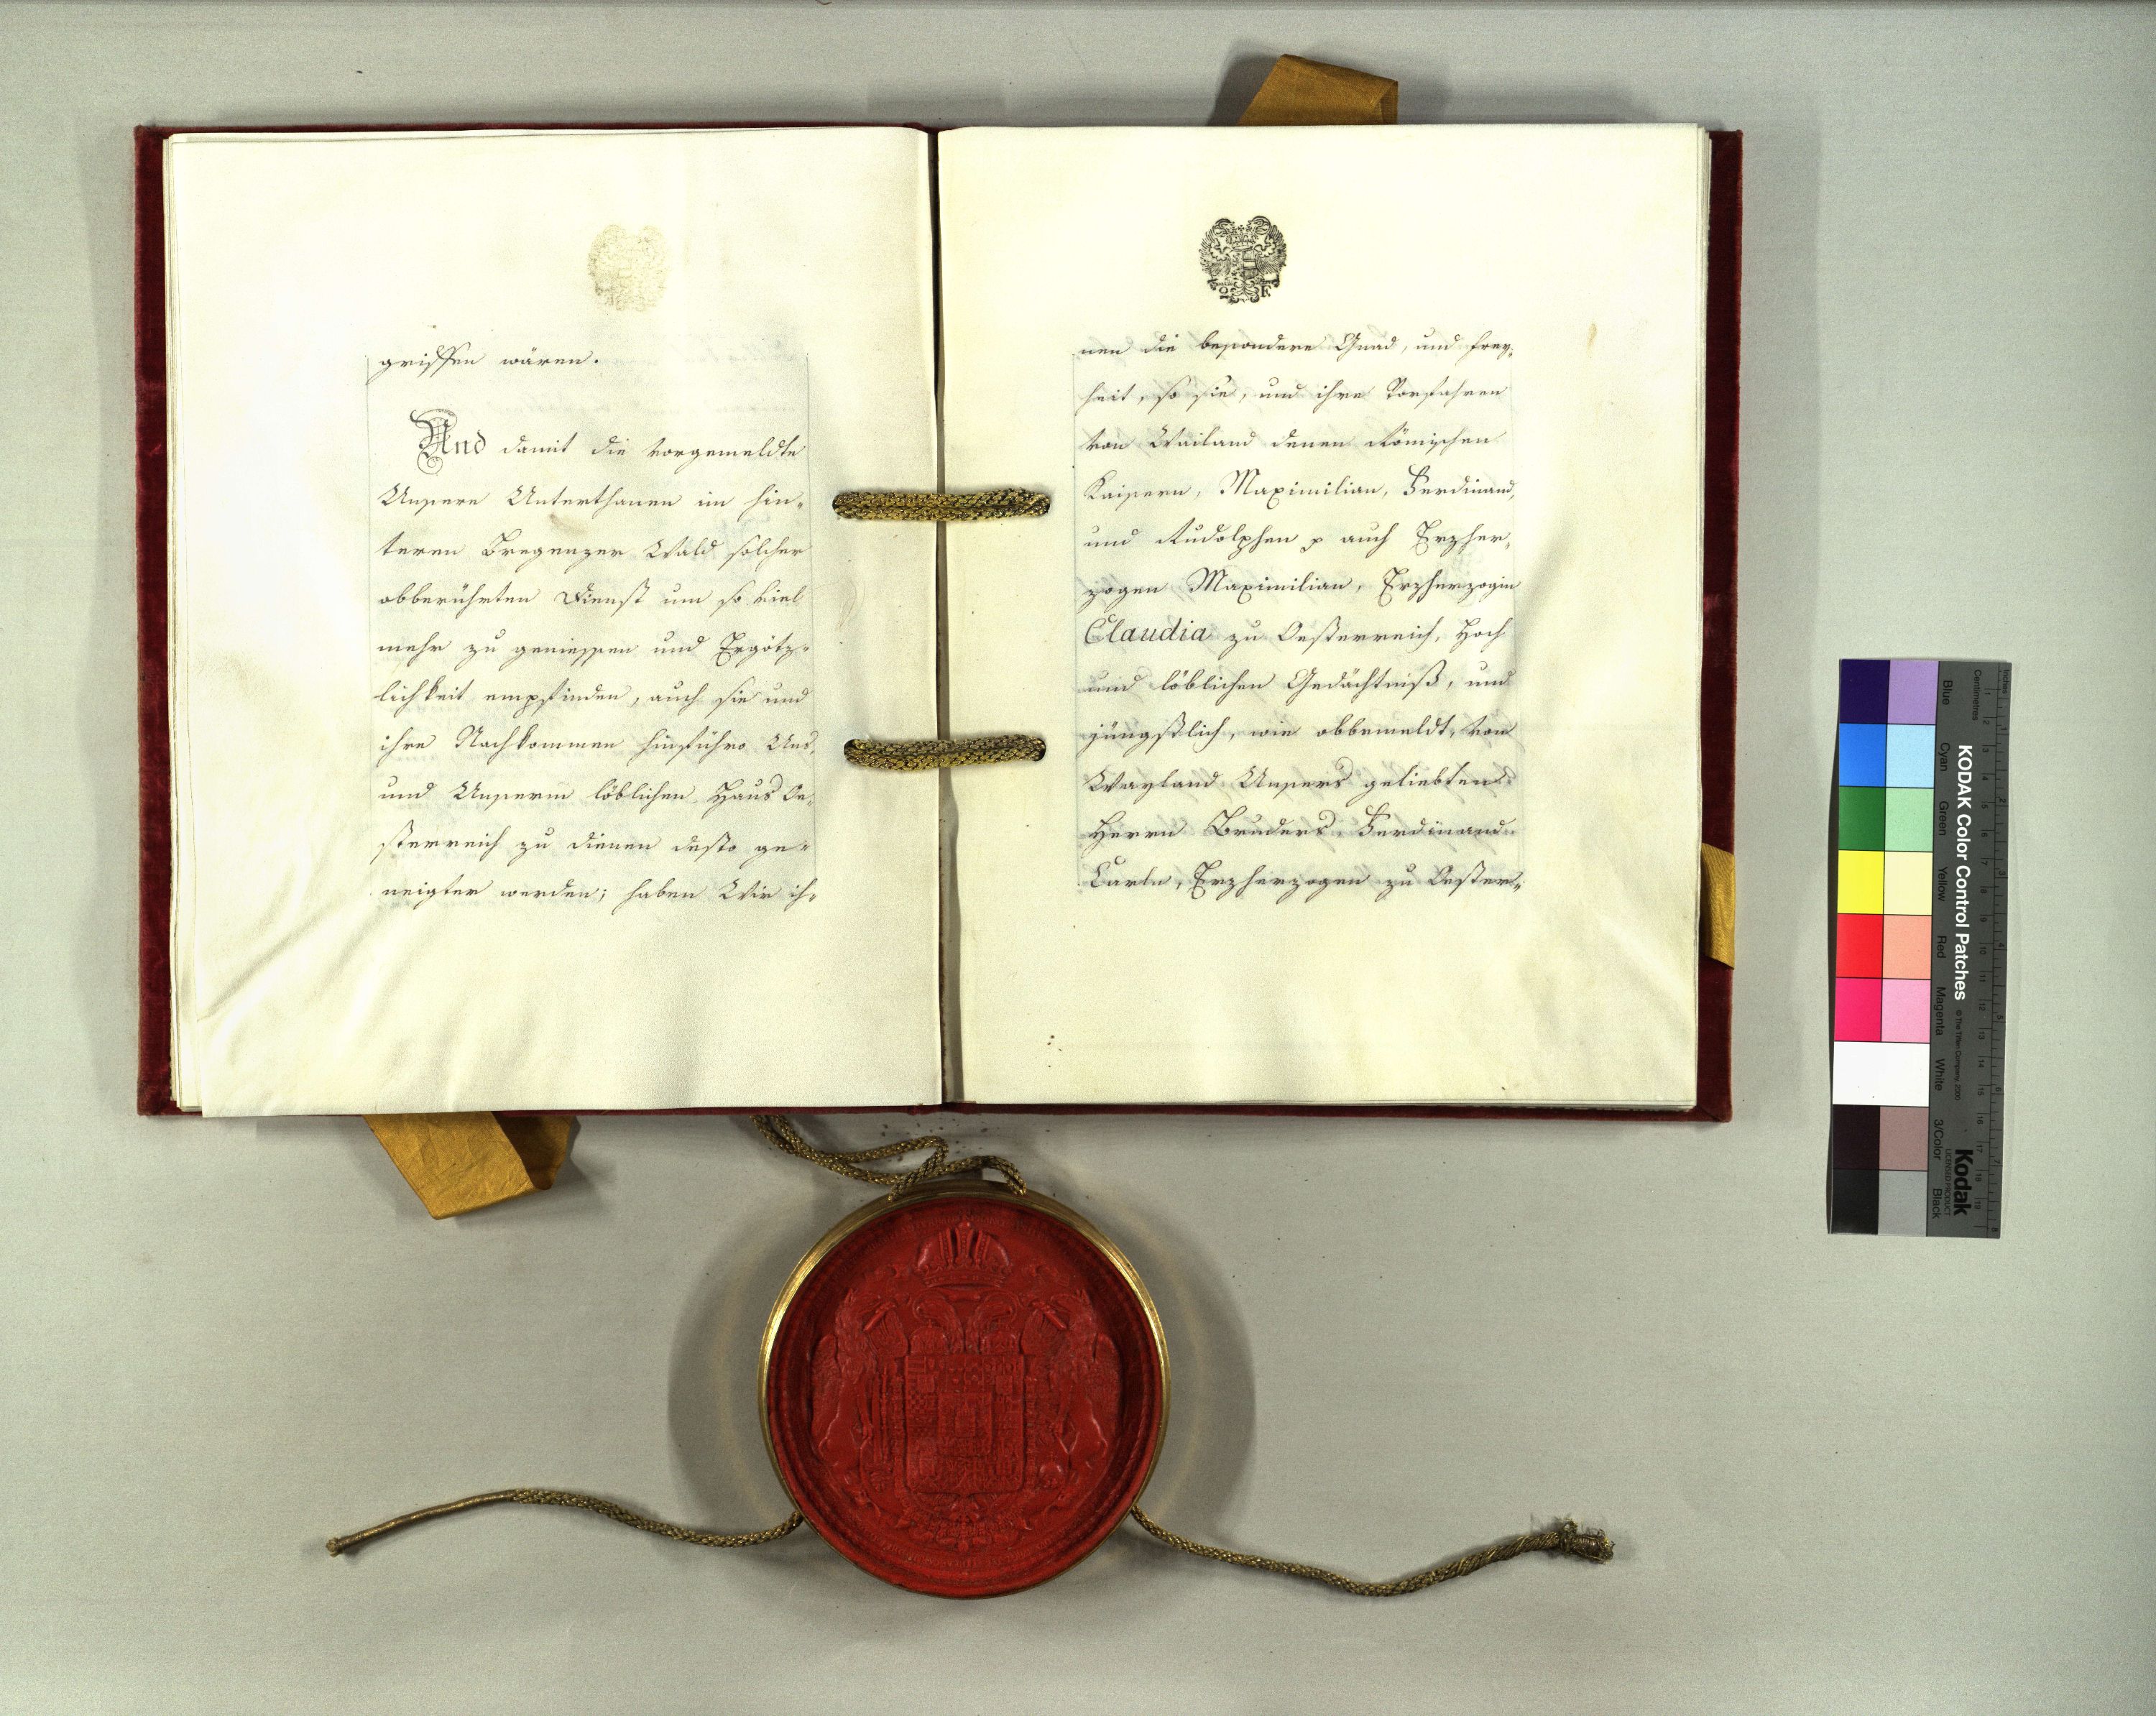 griffen wären.
Und damit die vorgemeldte
Unsere Unterthanen im hin-
teren Bregenzer Wald solcher
obberührten Dienst um so viel
mehr zu geniessen und Ergötz-
lichkeit empfinden, auch sie und
ihre Nachkommen hinführo Uns,
und Unserm löblichen Haus Oe-
sterreich zu dienen desto ge-
neigter werden; haben Wir ih-
nen die besondere Gnad, und Frey-
heit, so sie, und ihre Vorfahren
von Weiland denen Römischen
Kaisern, Maximilian, Ferdinand,
und Rudolphen auch Erzher-
zogen Maximilian, Erzherzogin
Claudia zu Oesterreich, Hoch
und löblichen Gedächtniß, und
jüngstlich, wie obbemeldt, von
Wayland Unsers geliebten
Herrn Bruders Ferdinand
Carln, Erzherzogen zu Oester-
KODAK Color Control Patches
© The Tiffen Company, 2000
Kodak
LICENSED PRODUCT
Blue Cyan Green Yellow Red Magenta White 3/Color Black
Inches
Centimetres